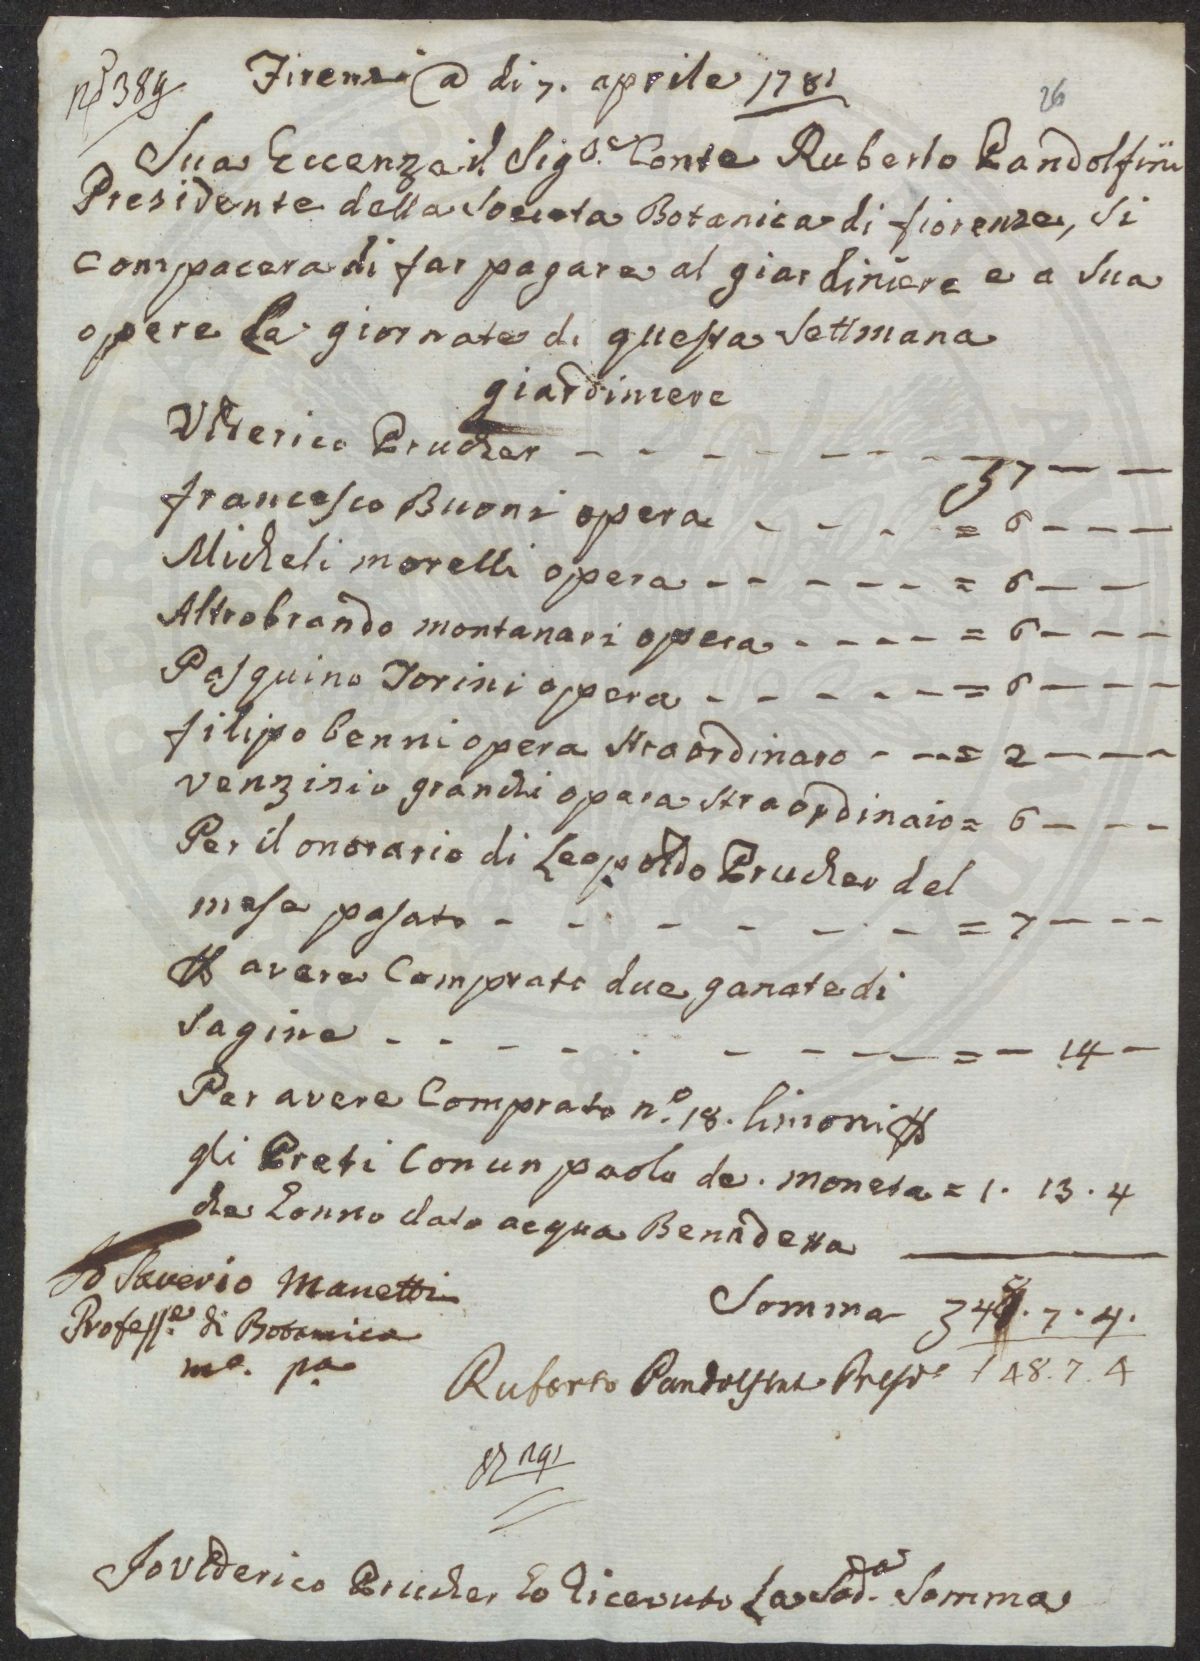 nº 389
Firenzi @ di 7. aprile 1781
26
Sua Eccenza il Sigr.e Conte Ruberto Pandolfini
Presidente della Socceta Botanica di fiorenze, Si
Compacera di far pagare al giardiniere e a Sua
opere La giornate di questa Settimana
giardiniere
Uldericο Prucher - - - - - - - - 37 — —
francesco Buoni opera - - - - = 6 - - -
Micheli morelli opera - - - - - = 6 - -
Altrobrando montanari opera - - - - = 6 - - -
Pasquino Torini opera - - - - - = 6 - - -
filipo benni opera straordinaro - - = 2 - - -
venzisio granchi opera straordinaio = 6 - - -
Per il onorario di Leopoldo Prucher del
mese pasato - - - - - - - = 7 - - -
avere Comprato due ganate di
Sagine - - - - - - - - - = - 14 -
Per avere Comprato n.º 18. limoni
gli Preti Con un paolo de. moneta = 1. 13. 4
che Lonno dato acqua Benidetta
Io Saverio Manetti
Profess.e di Botanica
mo. pa
Somma 348. 7. 4.
Ruberto Pandolfini Presid.e
148. 7. 4
Io Ulderico Prucher Lo Ricevuto La Sod.a Somma